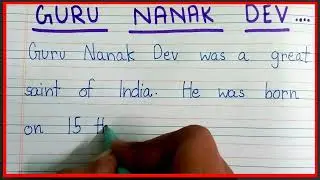 GURU NANAK DEV....
Guru Nanak Dev was a great
saint of India. He was born
on 15 th